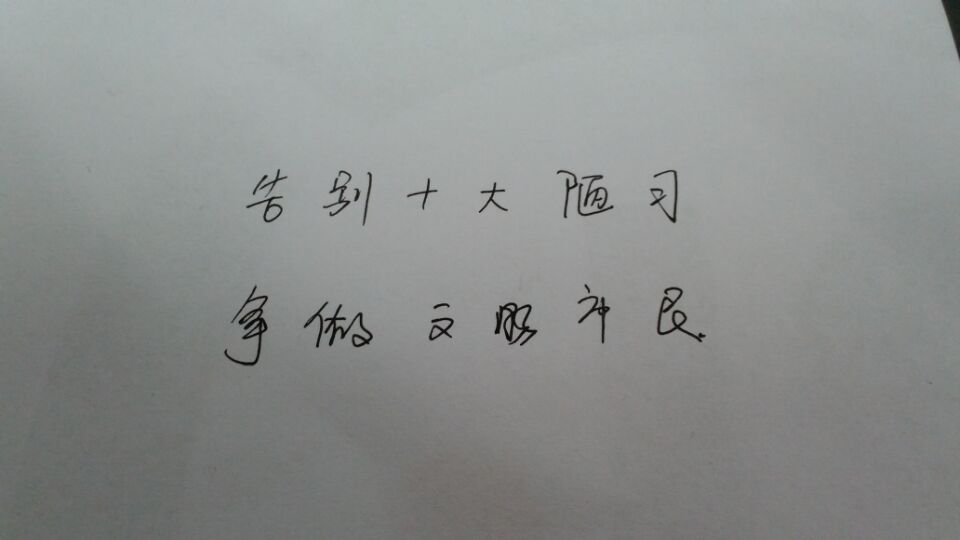 告别十大陋习
争做文明市民